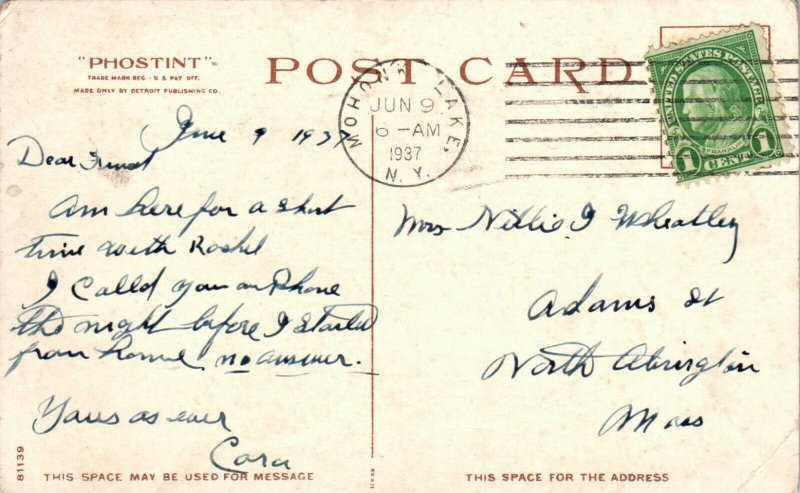 "PHOSTINT"
TRADE MARK REG - U.S. PAT OFF.
MADE ONLY BY DETROIT PUBLISHING CO.
POST CARD
MOHONK LAKE,
JUN 9
6-AM
1937
N. Y.
UNITED STATES POSTAGE
FRANKLIN
1 CENT 1
June 9 1937
Dear Friend
Am here for a short
time with Rachel
I calld you on Phone
the night before I started
from home no answer.
Yours as ever
Cora
Mrs Nellie J Wheatley
Adams St
North Abington
Mass
81139
THIS SPACE MAY BE USED FOR MESSAGE
THIS SPACE FOR THE ADDRESS